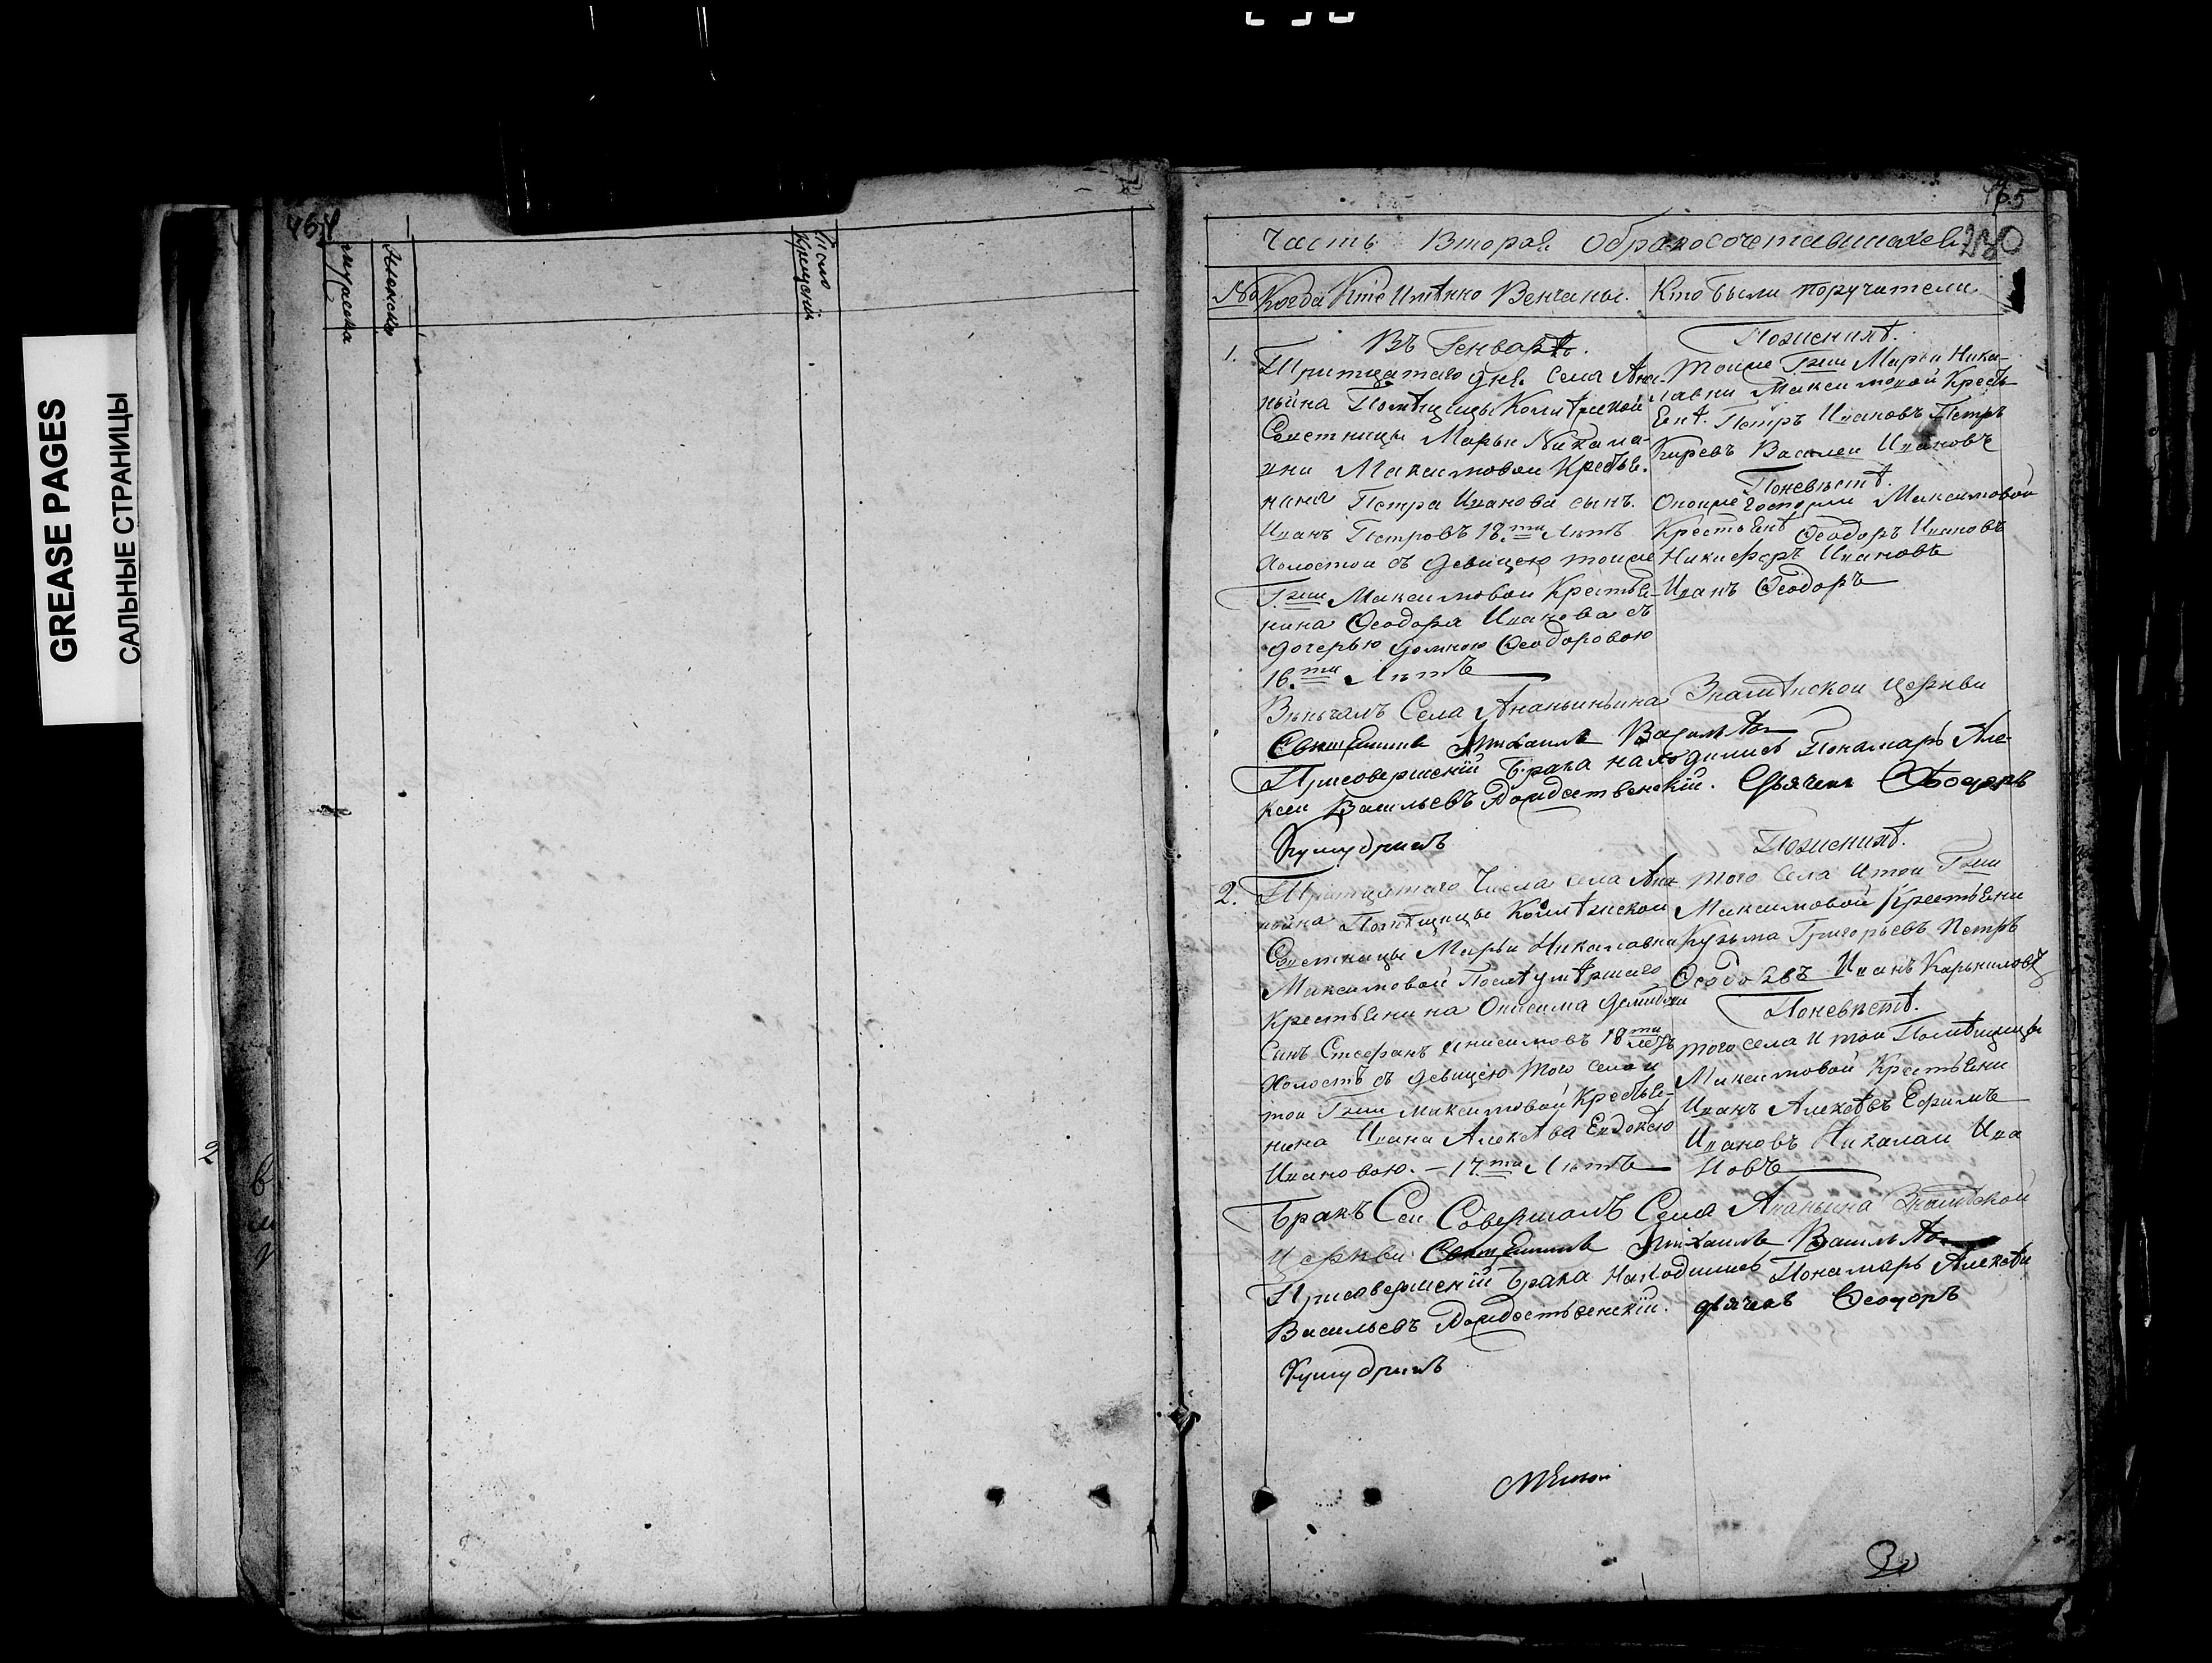 GREASE PAGES
САЛЬНЫЕ СТРАНИЦЫ
464
мужеска
женска
число
2
465
Часть Вторая Обракосочетавшихся
230
№ Когда Кто Имѣнно Венчаны.
Кто были поручители
1.
Въ Генварѣ.
Притцатаго дня Села Ана-
ньина Помѣщицы Колѣжской
Советницы Марьи Никала-
вни Максимовои Крестья-
нина Петра Иванова сынъ.
Иванъ Петровъ 18.ти Лѣтъ
Холостои съ девицею тоиже
Гжи Максимовои Крестье-
нина Ѳеодора Иванова съ
дочерью домною Ѳеодоровою
16.ти Лѣтъ
Пожених.
Тоиже Гжи Марьи Ника-
лавни Максимовой Кресть
Ени. Петръ Ивановъ Петръ
Киревъ Василеи Ивановъ
Поневѣстѣ.
Онойже госпожи Максимовой
Крестьени Ѳеодоръ Ивановъ
Никифоръ Ивановъ
Иванъ Ѳеодоръ
Веньчалъ Села Ананьиньина Знамѣнскои Церкви
Священникъ Михаилъ Василѣв
Присовершеніи Брака находились Понамарь Але-
ксеи Васильевъ Рождественскій. Дьячекъ Ѳеодоръ
2.
Притцятаго Числа села Ана
ньина Помѣщицы Колѣжскои
Советницы Марьи Никалавни
Максимовой Послѣ умѣршаго
Крестьенина Онисима
Сынъ Стефанъ Анисимовъ 18ти летъ
Холостъ съ девицею того села и
тои Гжи Максимовой Крестье-
нина Ивана Алексѣва Евдокею
Ивановою. – 17.ти Лѣтъ
Пожених.
того Села и тои Гжи
Максимовой Крестьени
Кузьма Григорьевъ Петръ
Иванъ Карниловъ
Поневѣстѣ.
того села и тои Помѣщицы
Максимовой Крестьени
Иванъ Алексѣвъ Ефимъ
Ивановъ Никалаи Ива
новъ
Бракъ Сеи Совершалъ Села Ананьина Знамѣской
Церкви Священникъ Михаилъ Василѣв
Присовершеніи Брака Находились Понамарь Алексѣи
Васильевъ Рождественскій. дьячекъ Ѳеодоръ